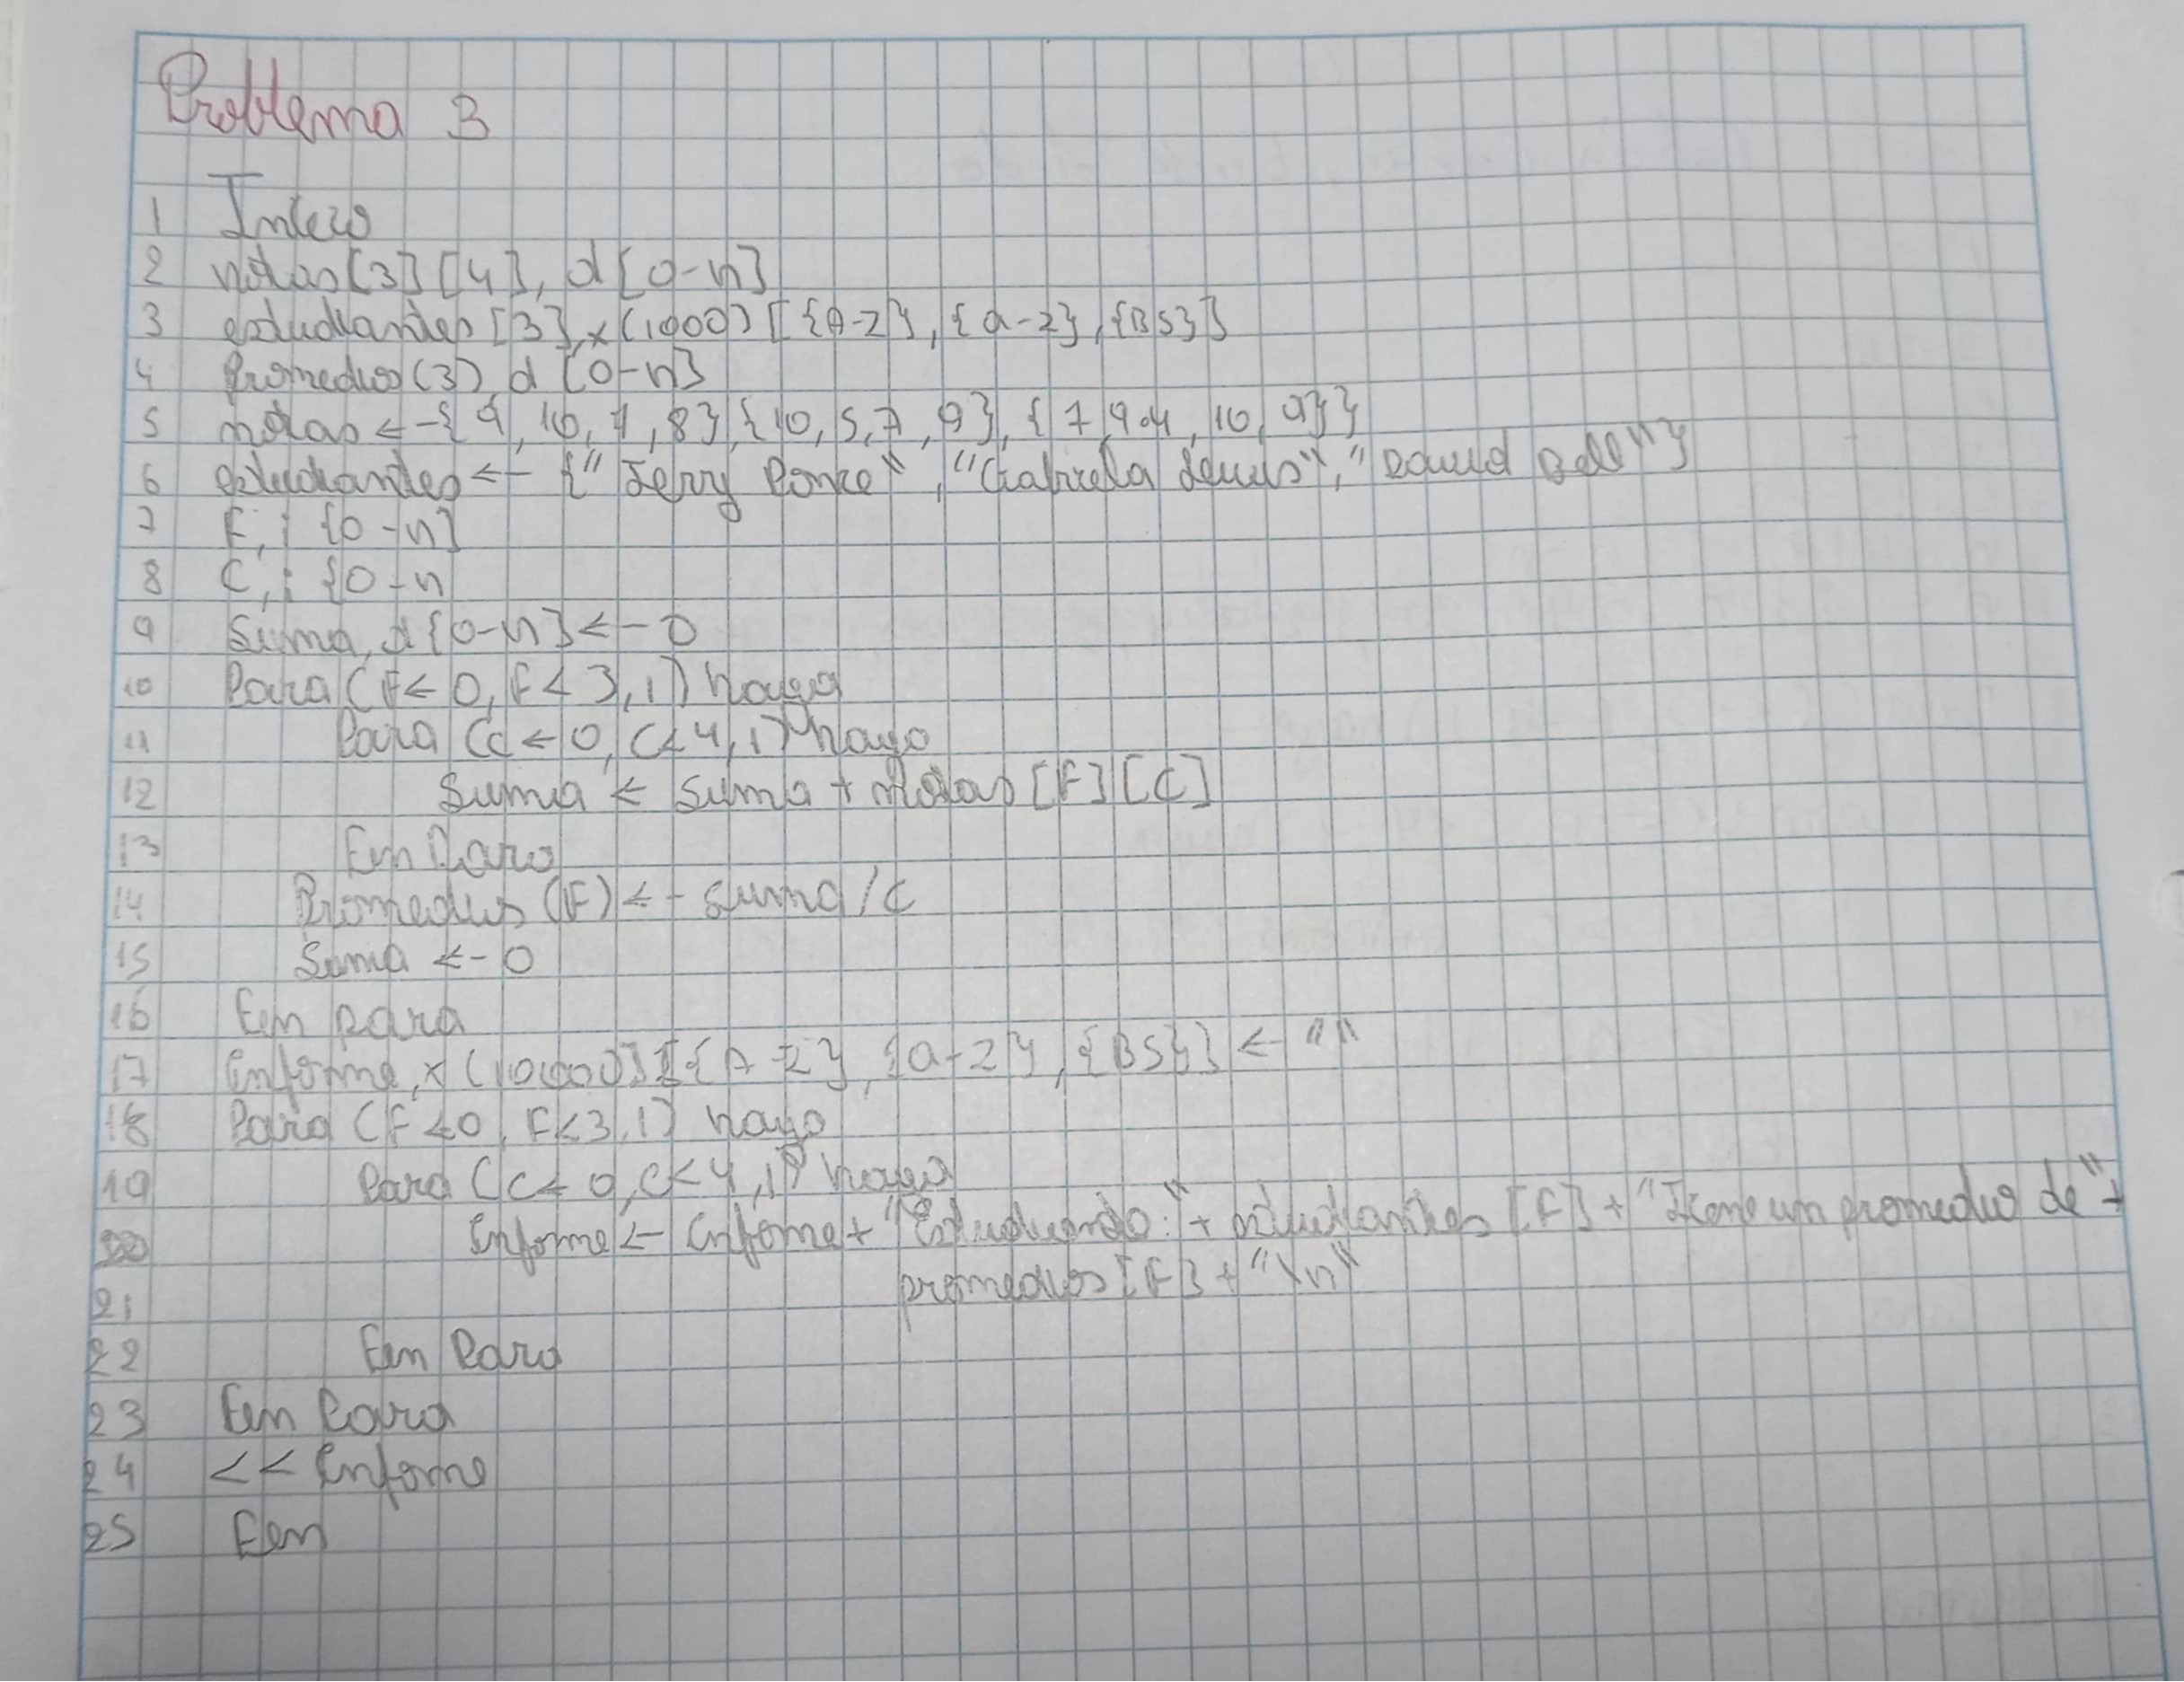 Problema 3
1 Inicio
2 notas [3] [4], d [0-n]
3 estudiantes [3], x (1000) [{A-Z}, {a-z}, {BS}]
4 Promedios (3) d [0-n]
5 notas <- {9, 10, 7, 8} {10, 5, 7, 9}, {7, 9.4, 10, 9}}
6 estudiantes <- {"Jerry Ponce", "Gabriela", "David"}
7 F, i {0-n]
8 C, i {0-n
9 Suma, d {0-n] <- 0
10 Para (F <- 0, F < 3, 1) haga
11 Para (C <- 0, C < 4, 1) haga
12 Suma <- suma + notas [F] [C]
13 Fin Para
14 Promedios (F) <- suma / C
15 Suma <- 0
16 Fin para
17 Informe, x (10000) [{A-Z}, {a-z}, {BS}] <- " "
18 Para (F <- 0, F < 3, 1) haga
19 Para (C <- 0, C < 4, 1) haga
20 Informe <- Informe + "Estudiante:" + estudiantes [F] + "Tiene un promedio de" +
21 promedios [F] + "\n"
22 Fin Para
23 Fin Para
24 << Informe
25 Fin